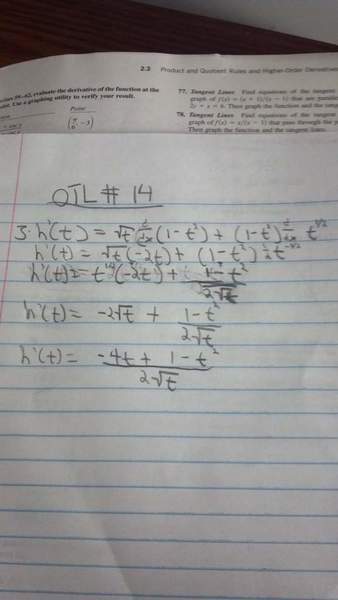 2.3 Product and Quotient Rules and Higher-Order Derivatives
59–62, evaluate the derivative of the function at the
Use a graphing utility to verify your result.
Point
77. Tangent Lines Find equations of the tangent
graph of f(x) = (x + 1)/(x − 1) that are parallel
2y + x = 6. Then graph the function and the tangent
78. Tangent Lines Find equations of the tangent
graph of f(x) = x/(x − 1) that pass through the
Then graph the function and the tangent lines.
OTL # 14
3. h'(t) = √t d/dx (1-t²) + (1-t²) d/dx t^1/2
h'(t) = √t (-2t) + (1-t²) 1/2 t^-1/2
h'(t) = t^1/2 (-2t) + 1-t² / 2√t
h'(t) = -2√t + 1-t² / 2√t
h'(t) = -4t + 1-t² / 2√t